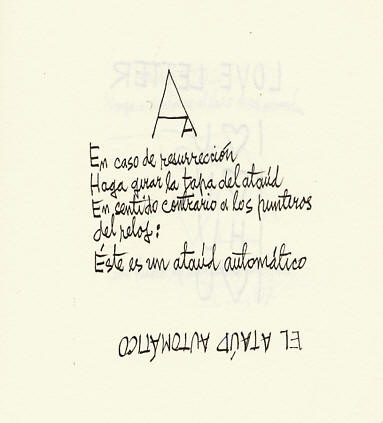 A
En caso de resurrección
Haga girar la tapa del ataúd
En sentido contrario a los punteros
del reloj:
Éste es un ataúd automático
EL ATAÚD AUTOMÁTICO